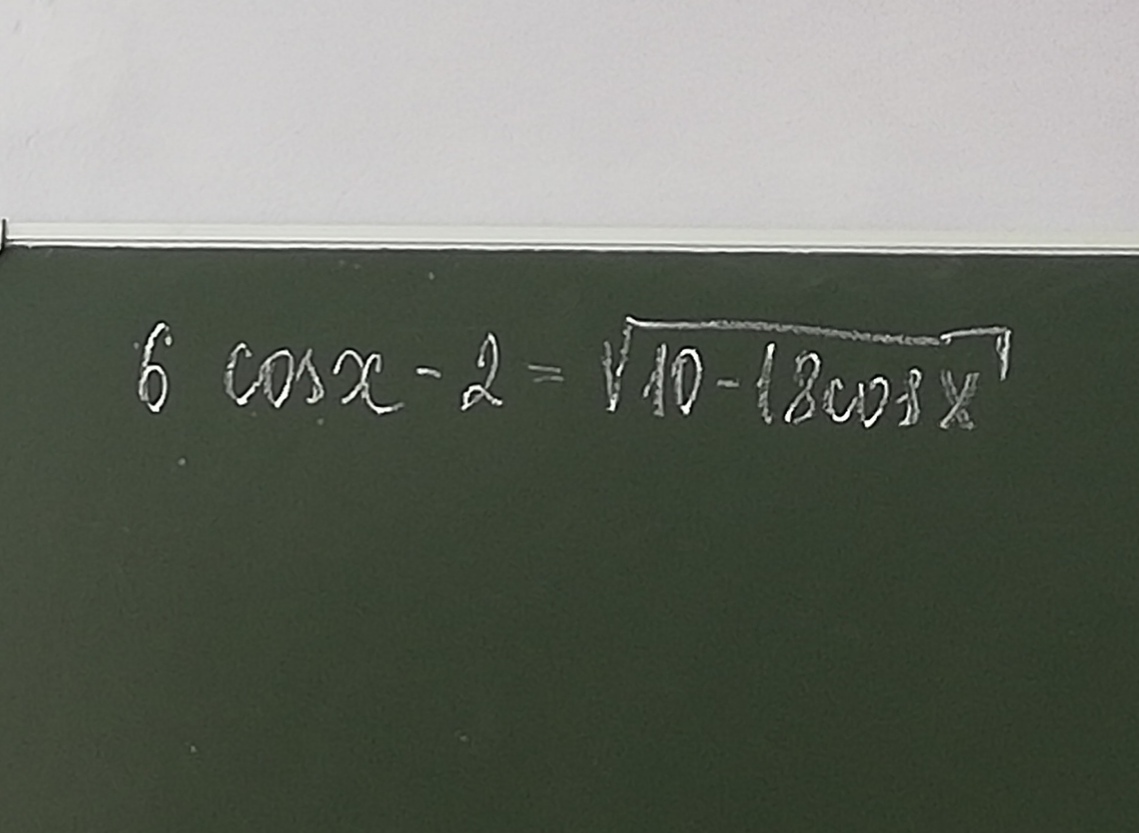 6 cosx - 2 = √10-18cosx